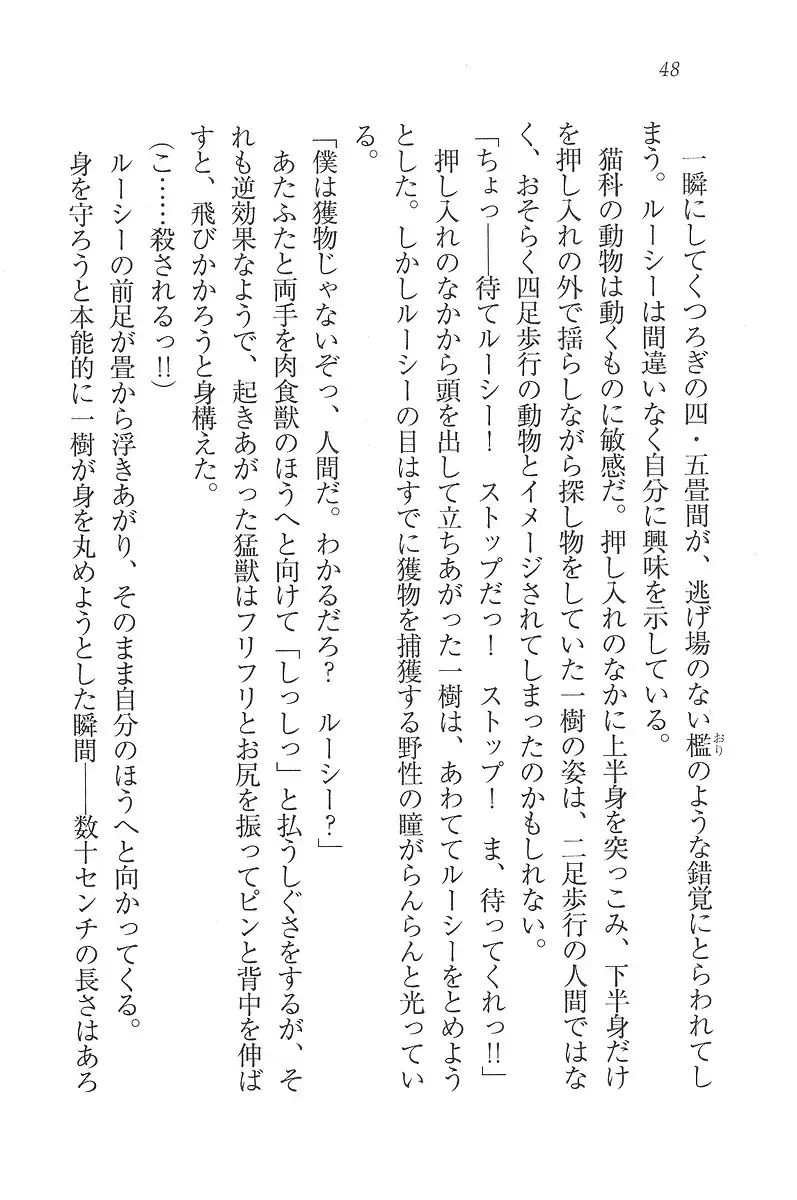 48
一瞬にしてくつろぎの四・五畳間が、逃げ場のない檻のような錯覚にとらわれてし
おり
まう。ルーシーは間違いなく自分に興味を示している。
猫科の動物は動くものに敏感だ。押し入れのなかに上半身を突っこみ、下半身だけ
を押し入れの外で揺らしながら探し物をしていた一樹の姿は、二足歩行の人間ではな
く、おそらく四足歩行の動物とイメージされてしまったのかもしれない。
「ちょっ――待てルーシー！　ストップだっ！　ストップ！　ま、待ってくれっ!!」
押し入れのなかから頭を出して立ちあがった一樹は、あわててルーシーをとめよう
とした。しかしルーシーの目はすでに獲物を捕獲する野性の瞳がらんらんと光ってい
る。
「僕は獲物じゃないぞっ、人間だ。わかるだろ？　ルーシー？」
あたふたと両手を肉食獣のほうへと向けて「しっしっ」と払うしぐさをするが、そ
れも逆効果なようで、起きあがった猛獣はフリフリとお尻を振ってピンと背中を伸ば
すと、飛びかかろうと身構えた。
（こ……殺されるっ!!）
ルーシーの前足が畳から浮きあがり、そのまま自分のほうへと向かってくる。
身を守ろうと本能的に一樹が身を丸めようとした瞬間――数十センチの長さはあろ